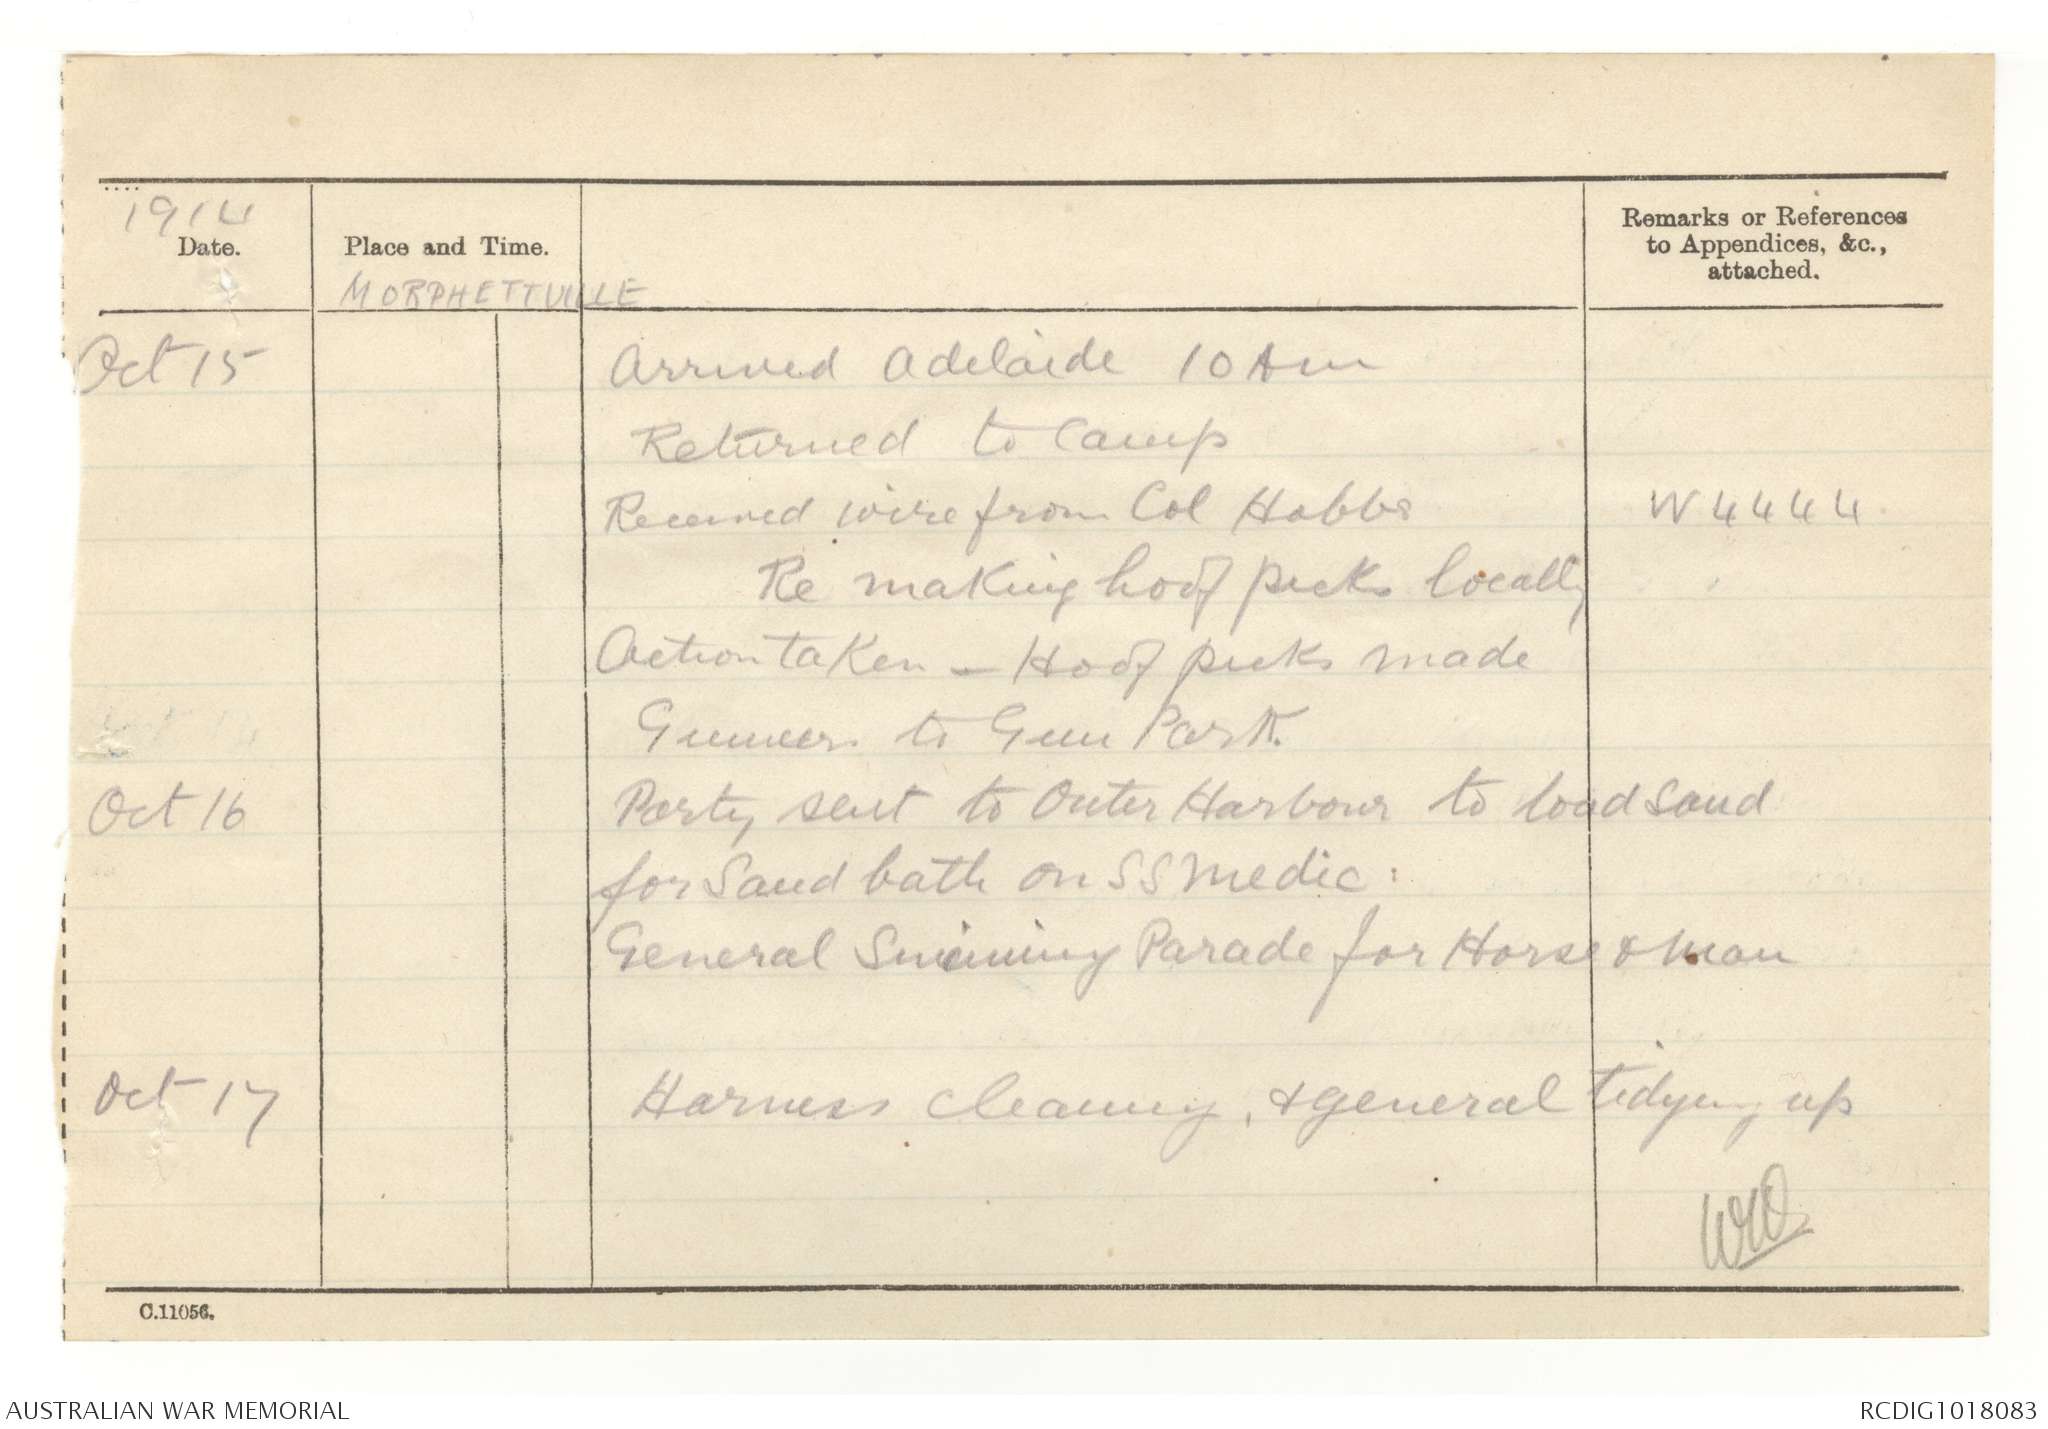 1914
Date.
Place and Time.
Remarks or References
to Appendices, &c.,
attached.
MORPHETTVILLE
Oct 15
Arrived Adelaide 10 Am
Returned to Camp
Received wire from Col Hobbs W 4444.
Re making hoof picks locally
Action taken - Hoof picks made
Gunners to Gun Park.
Oct 16 Party sent to Outer Harbour to load sand
for Sand bath on SS Medic:
General Swimming Parade for Horse & Man
Oct 17 Harness cleaning, & general tidying up
C.11056.
AUSTRALIAN WAR MEMORIAL
RCDIG1018083